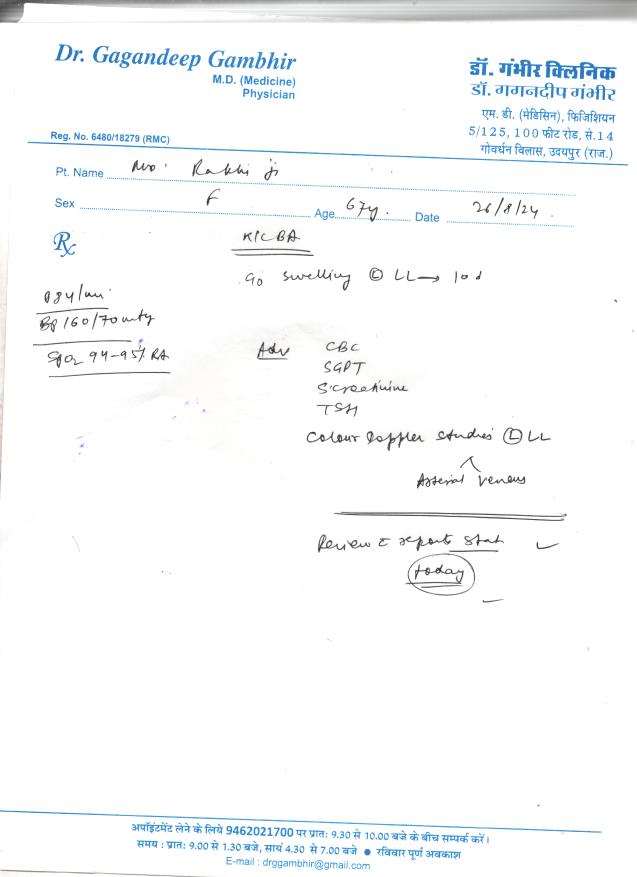 Dr. Gagandeep Gambhir
M.D. (Medicine)
Physician
Reg. No. 6480/18279 (RMC)
डॉ. गंभीर क्लिनिक
डॉ. गगनदीप गंभीर
एम. डी. (मेडिसिन), फिजिशियन
5/125, 100 फीट रोड, से.14
गोवर्धन विलास, उदयपुर (राज.)
Pt. Name Mrs. Rakhi ji
Sex F Age 67y. Date 26/8/24
Rx
K/C BA
swelling Ⓛ LL → 10d
84/mi
BP 160/70 mmHg
SpO2 94-95% RA
Adv CBC
SGPT
S. creatinine
TSH
Colour Doppler studies Ⓛ LL
Arterial venous
Review c reports stat
today
अपॉइंटमेंट लेने के लिये 9462021700 पर प्रातः 9.30 से 10.00 बजे के बीच सम्पर्क करें।
समय : प्रातः 9.00 से 1.30 बजे, सायं 4.30 से 7.00 बजे ● रविवार पूर्ण अवकाश
E-mail : drggambhir@gmail.com